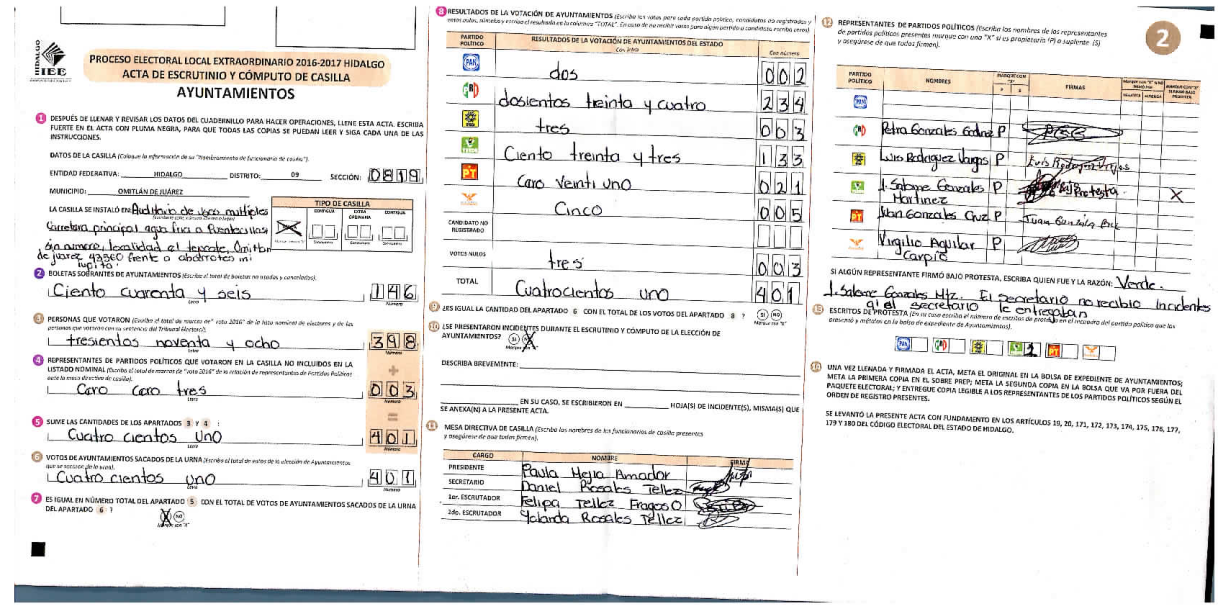 HIDALGO
IEE
PROCESO ELECTORAL LOCAL EXTRAORDINARIO 2016-2017 HIDALGO
ACTA DE ESCRUTINIO Y CÓMPUTO DE CASILLA
AYUNTAMIENTOS
1 DESPUÉS DE LLENAR Y REVISAR LOS DATOS DEL CUADERNILLO PARA HACER OPERACIONES, LLENE ESTA ACTA. ESCRIBA
FUERTE EN EL ACTA CON PLUMA NEGRA, PARA QUE TODAS LAS COPIAS SE PUEDAN LEER Y SIGA CADA UNA DE LAS
INSTRUCCIONES.
DATOS DE LA CASILLA (Coloque la información de su "Nombramiento de funcionario de casilla").
ENTIDAD FEDERATIVA: HIDALGO DISTRITO: 09 SECCIÓN: 0819
MUNICIPIO: OMITLÁN DE JUÁREZ
LA CASILLA SE INSTALÓ EN: Auditorio de usos multiples
Carretera principal agua fria a Puentecillas
sin numero, localidad el tepozte, Omitlan
de juarez 43560 frente a abarrotes mi
lupita
TIPO DE CASILLA
2 BOLETAS SOBRANTES DE AYUNTAMIENTOS (Escriba el total de boletas no usadas y canceladas).
Ciento cuarenta y seis 146
Letra Número
3 PERSONAS QUE VOTARON
tresientos noventa y ocho 398
Letra Número
4 REPRESENTANTES DE PARTIDOS POLÍTICOS QUE VOTARON EN LA CASILLA NO INCLUIDOS EN LA
LISTADO NOMINAL
Cero Cero tres 003
Letra Número
5 SUME LAS CANTIDADES DE LOS APARTADOS 3 Y 4 :
Cuatro cientos uno 401
Letra Número
6 VOTOS DE AYUNTAMIENTOS SACADOS DE LA URNA (Escriba el total de votos de la elección de Ayuntamientos
que se sacaron de la urna).
Cuatro cientos uno 401
Letra Número
7 ES IGUAL EN NÚMERO TOTAL DEL APARTADO 5 CON EL TOTAL DE VOTOS DE AYUNTAMIENTOS SACADOS DE LA URNA
DEL APARTADO 6 ?
X NO
8 RESULTADOS DE LA VOTACIÓN DE AYUNTAMIENTOS
PARTIDO POLÍTICO RESULTADOS DE LA VOTACIÓN DE AYUNTAMIENTOS DEL ESTADO
Con letra Con número
PAN dos 002
PRI dosientos treinta y cuatro 234
tres 003
VERDE Ciento treinta y tres 133
PT Cero Veinti uno 021
Cinco 005
CANDIDATO NO REGISTRADO
VOTOS NULOS tres 003
TOTAL Cuatrocientos uno 401
9 ¿ES IGUAL LA CANTIDAD DEL APARTADO 6 CON EL TOTAL DE LOS VOTOS DEL APARTADO 8 ? SI NO
10 ¿SE PRESENTARON INCIDENTES DURANTE EL ESCRUTINIO Y CÓMPUTO DE LA ELECCIÓN DE
AYUNTAMIENTOS? SI X
DESCRIBA BREVEMENTE:
EN SU CASO, SE ESCRIBIERON EN HOJA(S) DE INCIDENTE(S), MISMA(S) QUE
SE ANEXA(N) A LA PRESENTE ACTA.
11 MESA DIRECTIVA DE CASILLA (Escriba los nombres de los funcionarios de casilla presentes
y asegúrese de que todos firmen).
CARGO NOMBRE FIRMA
PRESIDENTE Paula Mejia Amador
SECRETARIO Daniel Rosales Tellez
1er. ESCRUTADOR Felipa Tellez Fragoso
2do. ESCRUTADOR Yolanda Rosales Tellez
12 REPRESENTANTES DE PARTIDOS POLÍTICOS (Escriba los nombres de los representantes
de partidos políticos presentes marque con una "X" si es propietario (P) o suplente (S)
y asegúrese de que todos firmen).
2
PARTIDO POLÍTICO NOMBRES P S FIRMAS
PAN
PRI Petra Gonzales P
Luis Rodriguez Vargas P Luis Rodriguez Vargas
VERDE J. Salome Gonzales Martinez P Bajo Protesta X
PT Juan Gonzales Cruz P Juan Gonzales Cruz
Virgilio Aguilar Carpio P
SI ALGÚN REPRESENTANTE FIRMÓ BAJO PROTESTA, ESCRIBA QUIEN FUE Y LA RAZÓN: Verde.
J. Salome Gonzales Mtz. El secretario no recibio Incidentes
q' al secretario le entregaban
13 ESCRITOS DE PROTESTA (En su caso escriba el número de escritos de protesta en el recuadro del partido político que los
presentó y métalos en la bolsa de expediente de Ayuntamientos).
PAN PRI VERDE 2 PT
14 UNA VEZ LLENADA Y FIRMADA EL ACTA, META EL ORIGINAL EN LA BOLSA DE EXPEDIENTE DE AYUNTAMIENTOS;
META LA PRIMERA COPIA EN EL SOBRE PREP; META LA SEGUNDA COPIA EN LA BOLSA QUE VA POR FUERA DEL
PAQUETE ELECTORAL; Y ENTREGUE COPIA LEGIBLE A LOS REPRESENTANTES DE LOS PARTIDOS POLÍTICOS SEGÚN EL
ORDEN DE REGISTRO PRESENTES.
SE LEVANTÓ LA PRESENTE ACTA CON FUNDAMENTO EN LOS ARTÍCULOS 19, 20, 171, 172, 173, 174, 175, 176, 177,
179 Y 180 DEL CÓDIGO ELECTORAL DEL ESTADO DE HIDALGO.